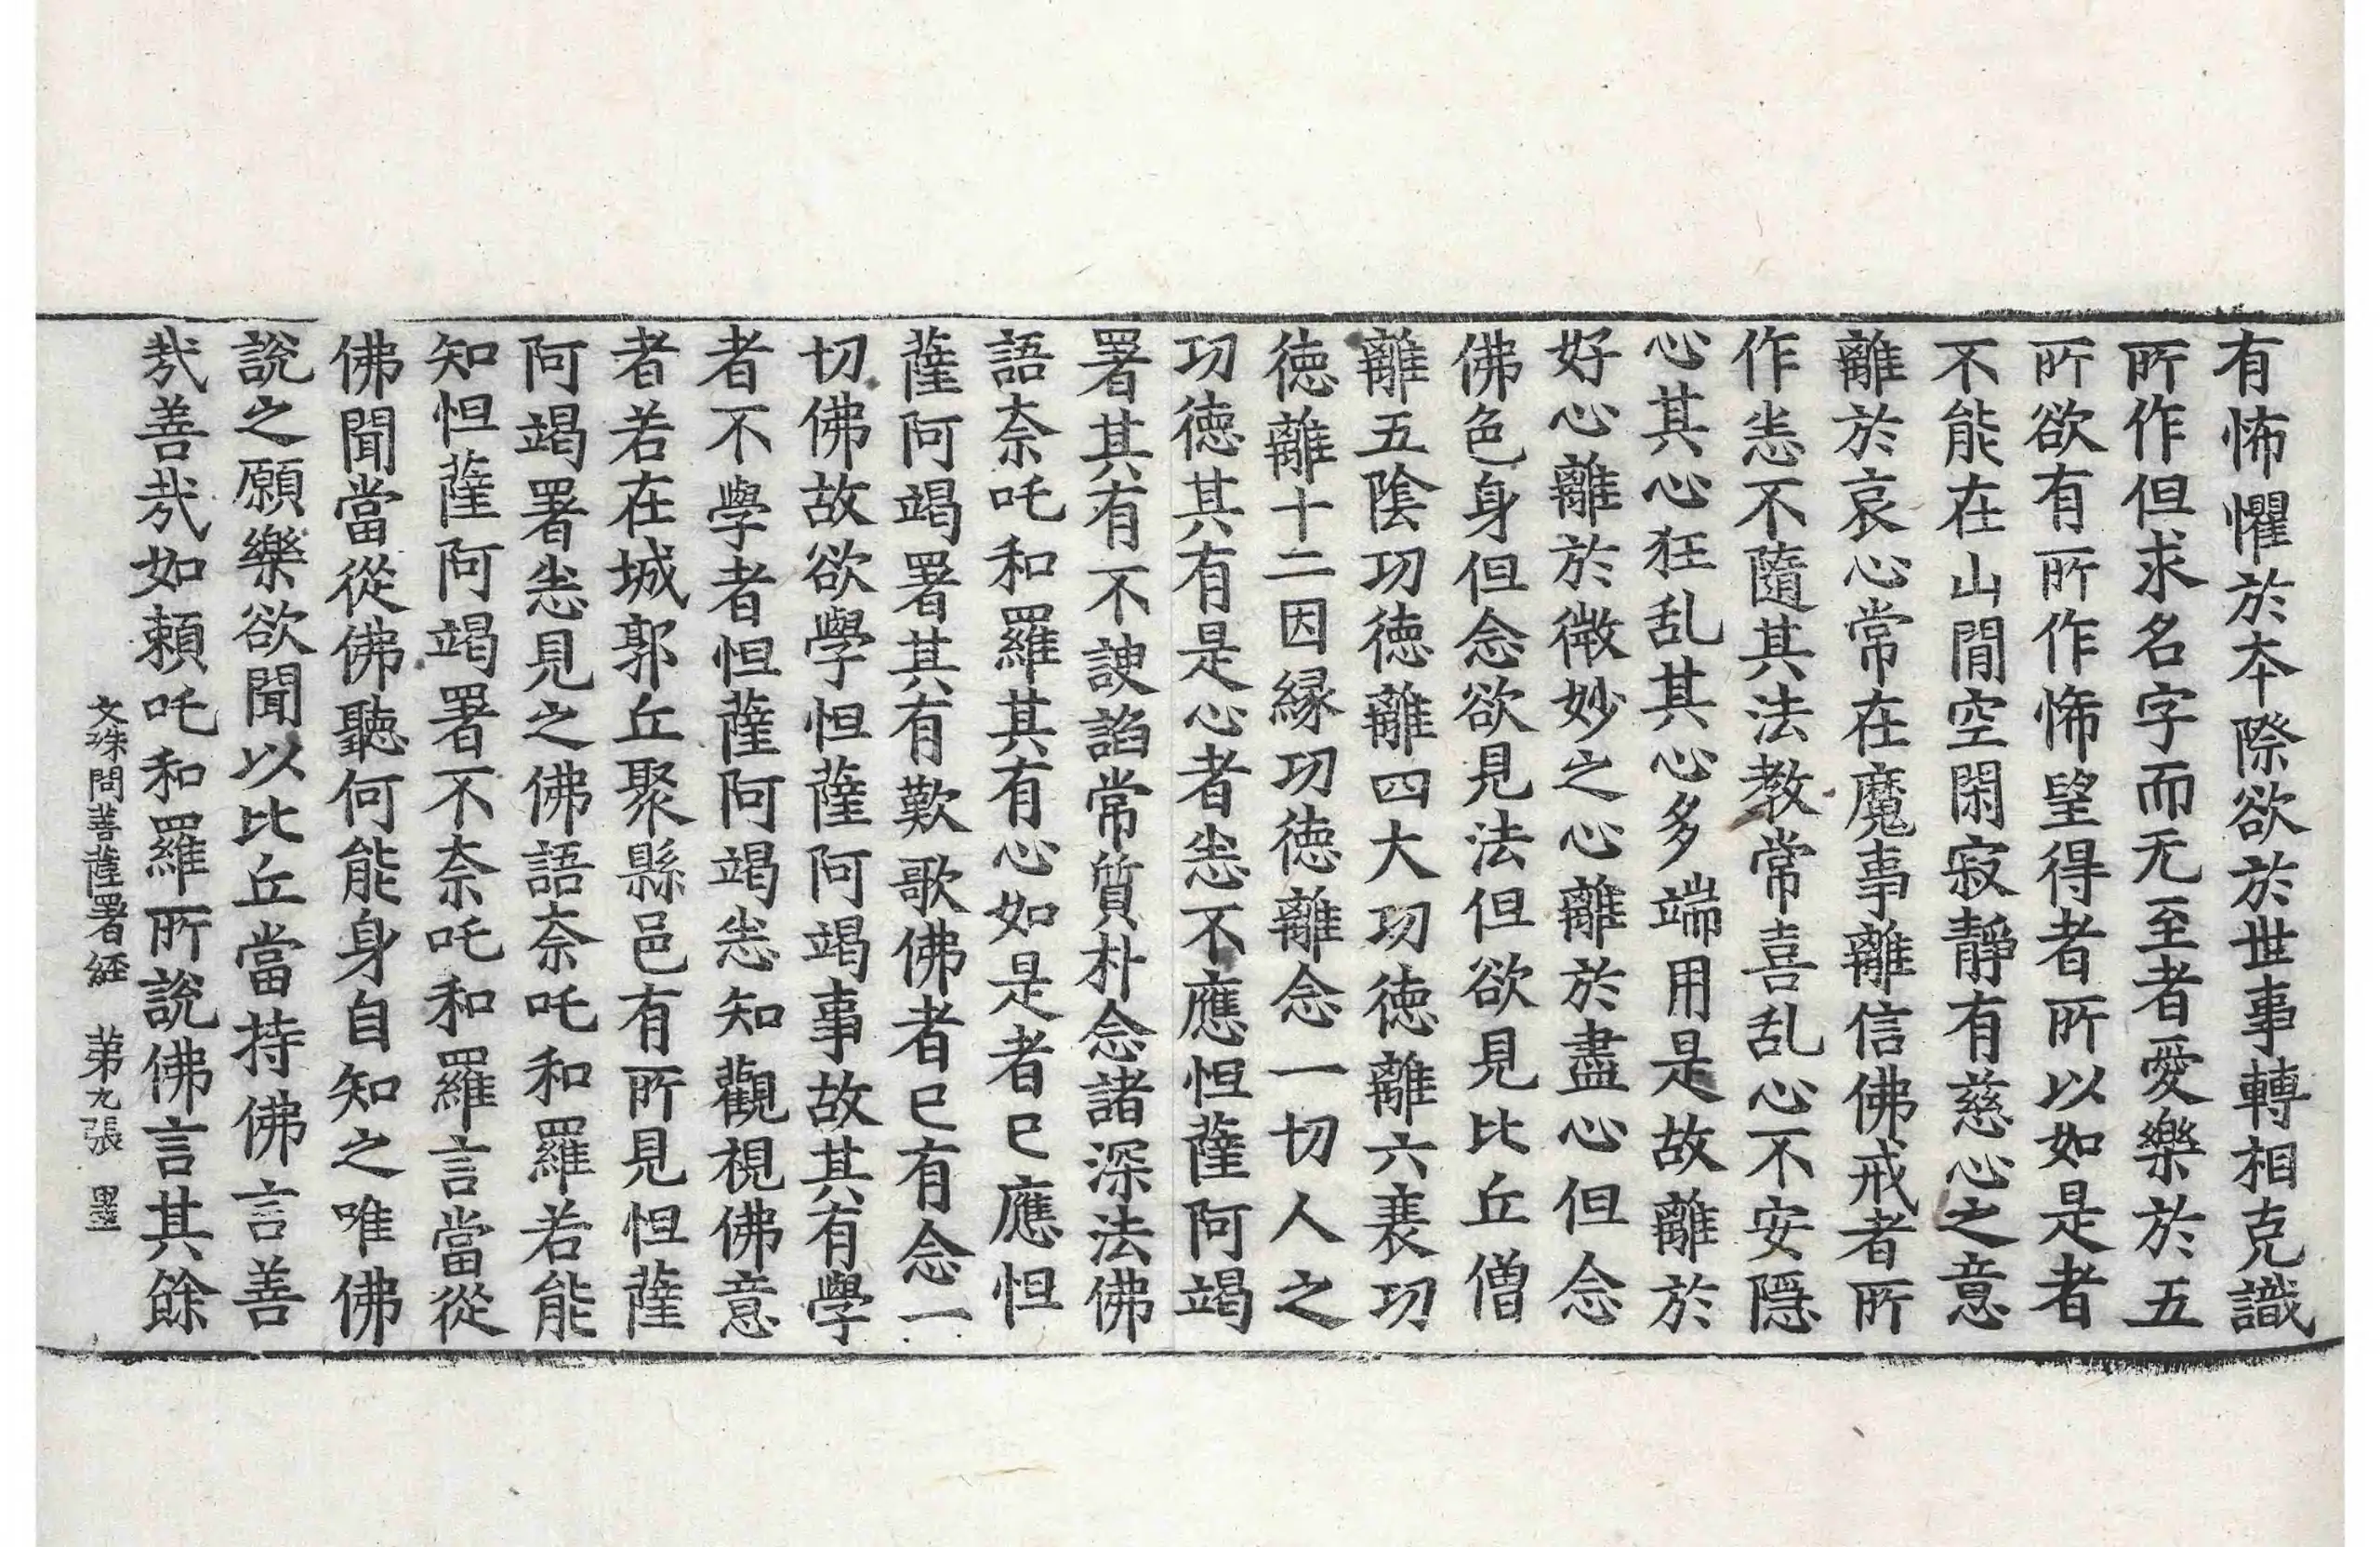 有怖懼於本際欲於世事轉相克識
所作但求名字而无至者愛樂於五
所欲有所作怖望得者所以如是者
不能在山間空閑寂靜有慈心之意
離於哀心常在魔事離信佛戒者所
作恙不隨其法教常喜乱心不安隱
心其心狂乱其心多端用是故離於
好心離於微妙之心離於盡心但念
佛色身但念欲見法但欲見比丘僧
離五陰功徳離四大功徳離六衰功
徳離十二因縁功徳離念一切人之
功徳其有是心者恙不應怛薩阿竭
署其有不諛諂常質朴念諸深法佛
語奈吒和羅其有心如是者已應怛
薩阿竭署其有歎歌佛者已有念一
切佛故欲學怛薩阿竭事故其有學
者不學者怛薩阿竭恙知觀視佛意
者若在城郭丘聚縣邑有所見怛薩
阿竭署恙見之佛語奈吒和羅若能
知怛薩阿竭署不奈吒和羅言當從
佛聞當從佛聽何能身自知之唯佛
說之願樂欲聞以比丘當持佛言善
㢤善㢤如賴吒和羅所說佛言其餘
文殊問菩薩署經 第九張 墨